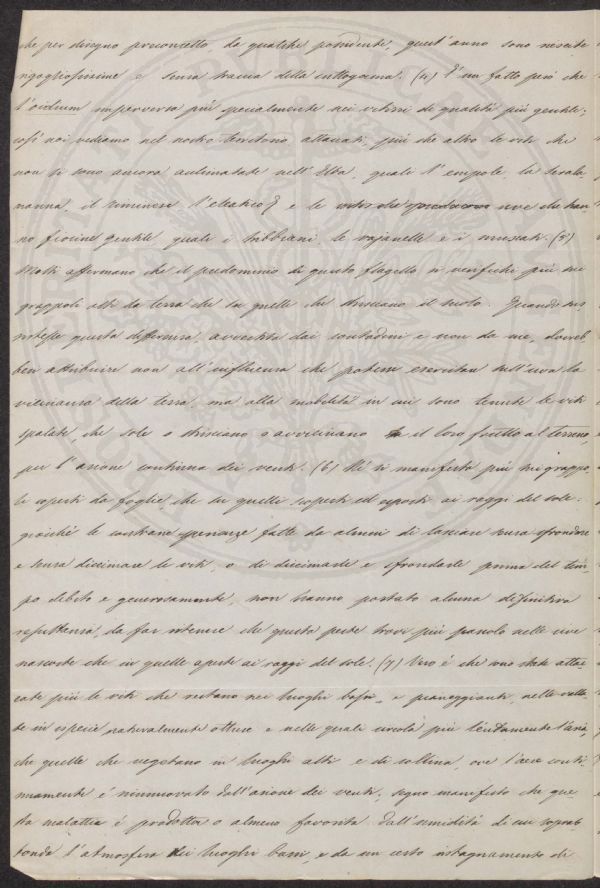 che per disegno preconcetto, da qualche possidente, quest'anno sono riescite
rigogliosissime e senza traccia della crittogama. (4) È un fatto però che
l'oidium imperversa più specialmente nei vitizzi di qualità più gentile;
così noi vediamo nel nostro territorio attaccati, più che altro le viti che
non si sono ancora acclimatate nell'Elba, quali l'empole, la serala-
manna, il riminese l'aleatico, e le uve che han-
no fiocine gentile quali i tribbiani, le rapanelle e i muscati. (5)
Molti affermano che il predominio di questo flagello si verifichi più nei
grappoli alti da terra che in quelli che strisciano il suolo. Quando sus-
sistesse questa differenza, avvertita dai contadini e non da me, dovreb-
besi attribuire non all'influenza che potesse esercitare nell'uva la
vicinanza della terra, ma alla mobilità in cui sono tenute le viti
spalate, che sole o strisciano o avvicinano il loro frutto al terreno,
per l'azione continua dei venti. (6) Nè si manifesta più nei grappo-
li coperti da foglie, che in quelli scoperti ed esposti ai raggi del sole:
giacchè le contrarie sperienze fatte da alcuni di lasciare senza sfrondare
e senza diccimare le viti, o di diccimarle e sfrondarle prima del tem-
po debito e generosamente, non hanno portato alcuna definitiva
resultanza, da far ritenere che questa peste trovi più pascolo nelle uve
nascoste che in quelle aperte ai raggi del sole. (7) Vero è che sono state attac-
cate più le viti che restano nei luoghi bassi, e pianeggianti, nelle valla-
te in specie naturalmente ottuse e nelle quali circola più lentamente l'aria,
che quelle che vegetano in luoghi alti e di collina, ove l'aere conti-
nuamente è rinnuovato dall'azione dei venti; segno manifesto che que-
sta malattia è prodotta o almeno favorita dall'umidità di cui soprab-
bonda l'atmosfera dei luoghi bassi, e da un certo ristagnamento di